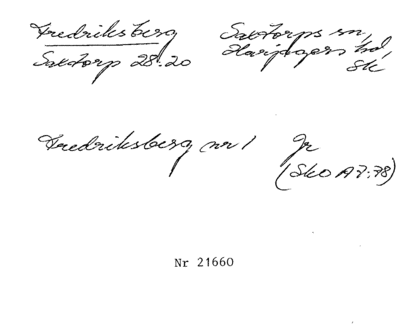 Fredriksberg Saxtorps sn,
Saxtorp 28:20 Harjagers hd,
Sk
Fredriksberg nr 1 Jr
(SkO A7:78)
Nr 21660